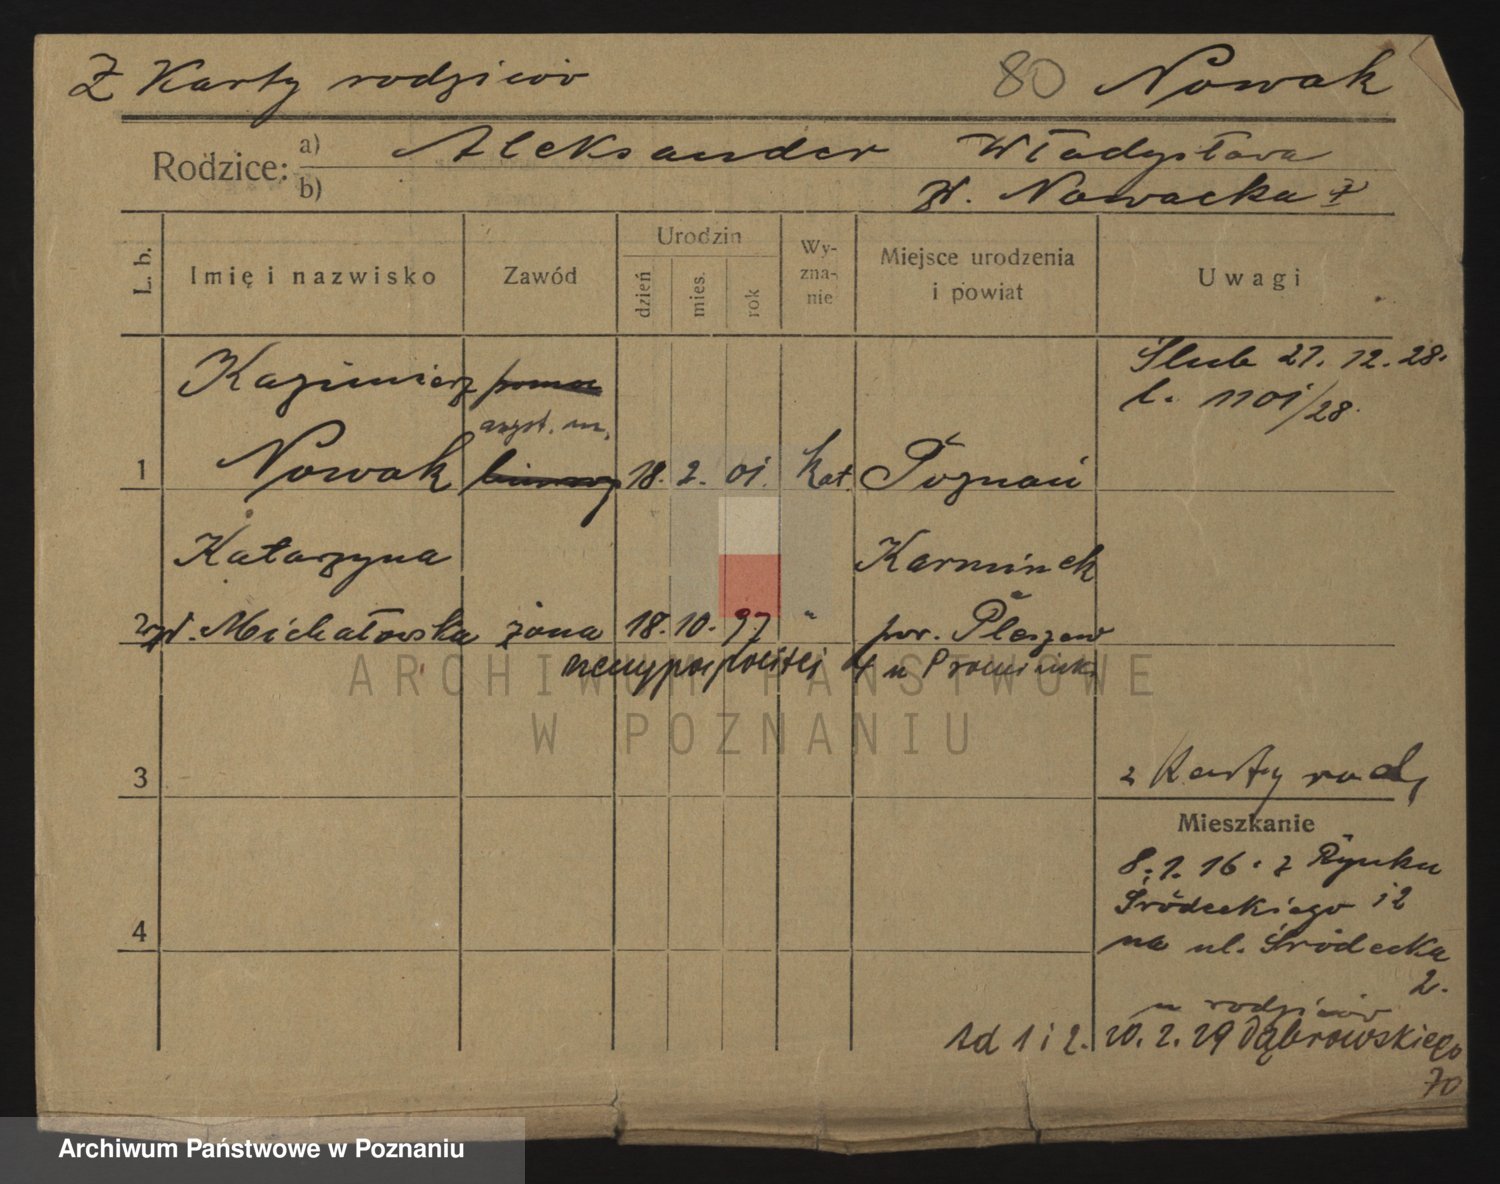 Z Karty rodziców 80 Nowak
Rodzice: a) Aleksander Władysława
b) zd. Nowacka
L. b. Imię i nazwisko Zawód Urodzin dzień mies. rok Wy-zna-nie Miejsce urodzenia i powiat Uwagi
Kazimierz pomoc Ślub 27. 12. 28.
asyst. l. 1101/28
1 Nowak biurowy 18. 2. 01. kat. Poznań
Katarzyna Karminek
2 zd. Michałowska żona 18. 10. 97 " pow. Pleszew
rzeczypospolitej 4 u
ARCHIWUM PAŃSTWOWE
W POZNANIU
z Karty rodz.
3
Mieszkanie
8. 1. 16. z Rynku
Śródeckiego 12
4
na ul. Śródecka
2.
u rodziców
Ad 1 i 2. 20. 2. 29 Dąbrowskiego
70
Archiwum Państwowe w Poznaniu